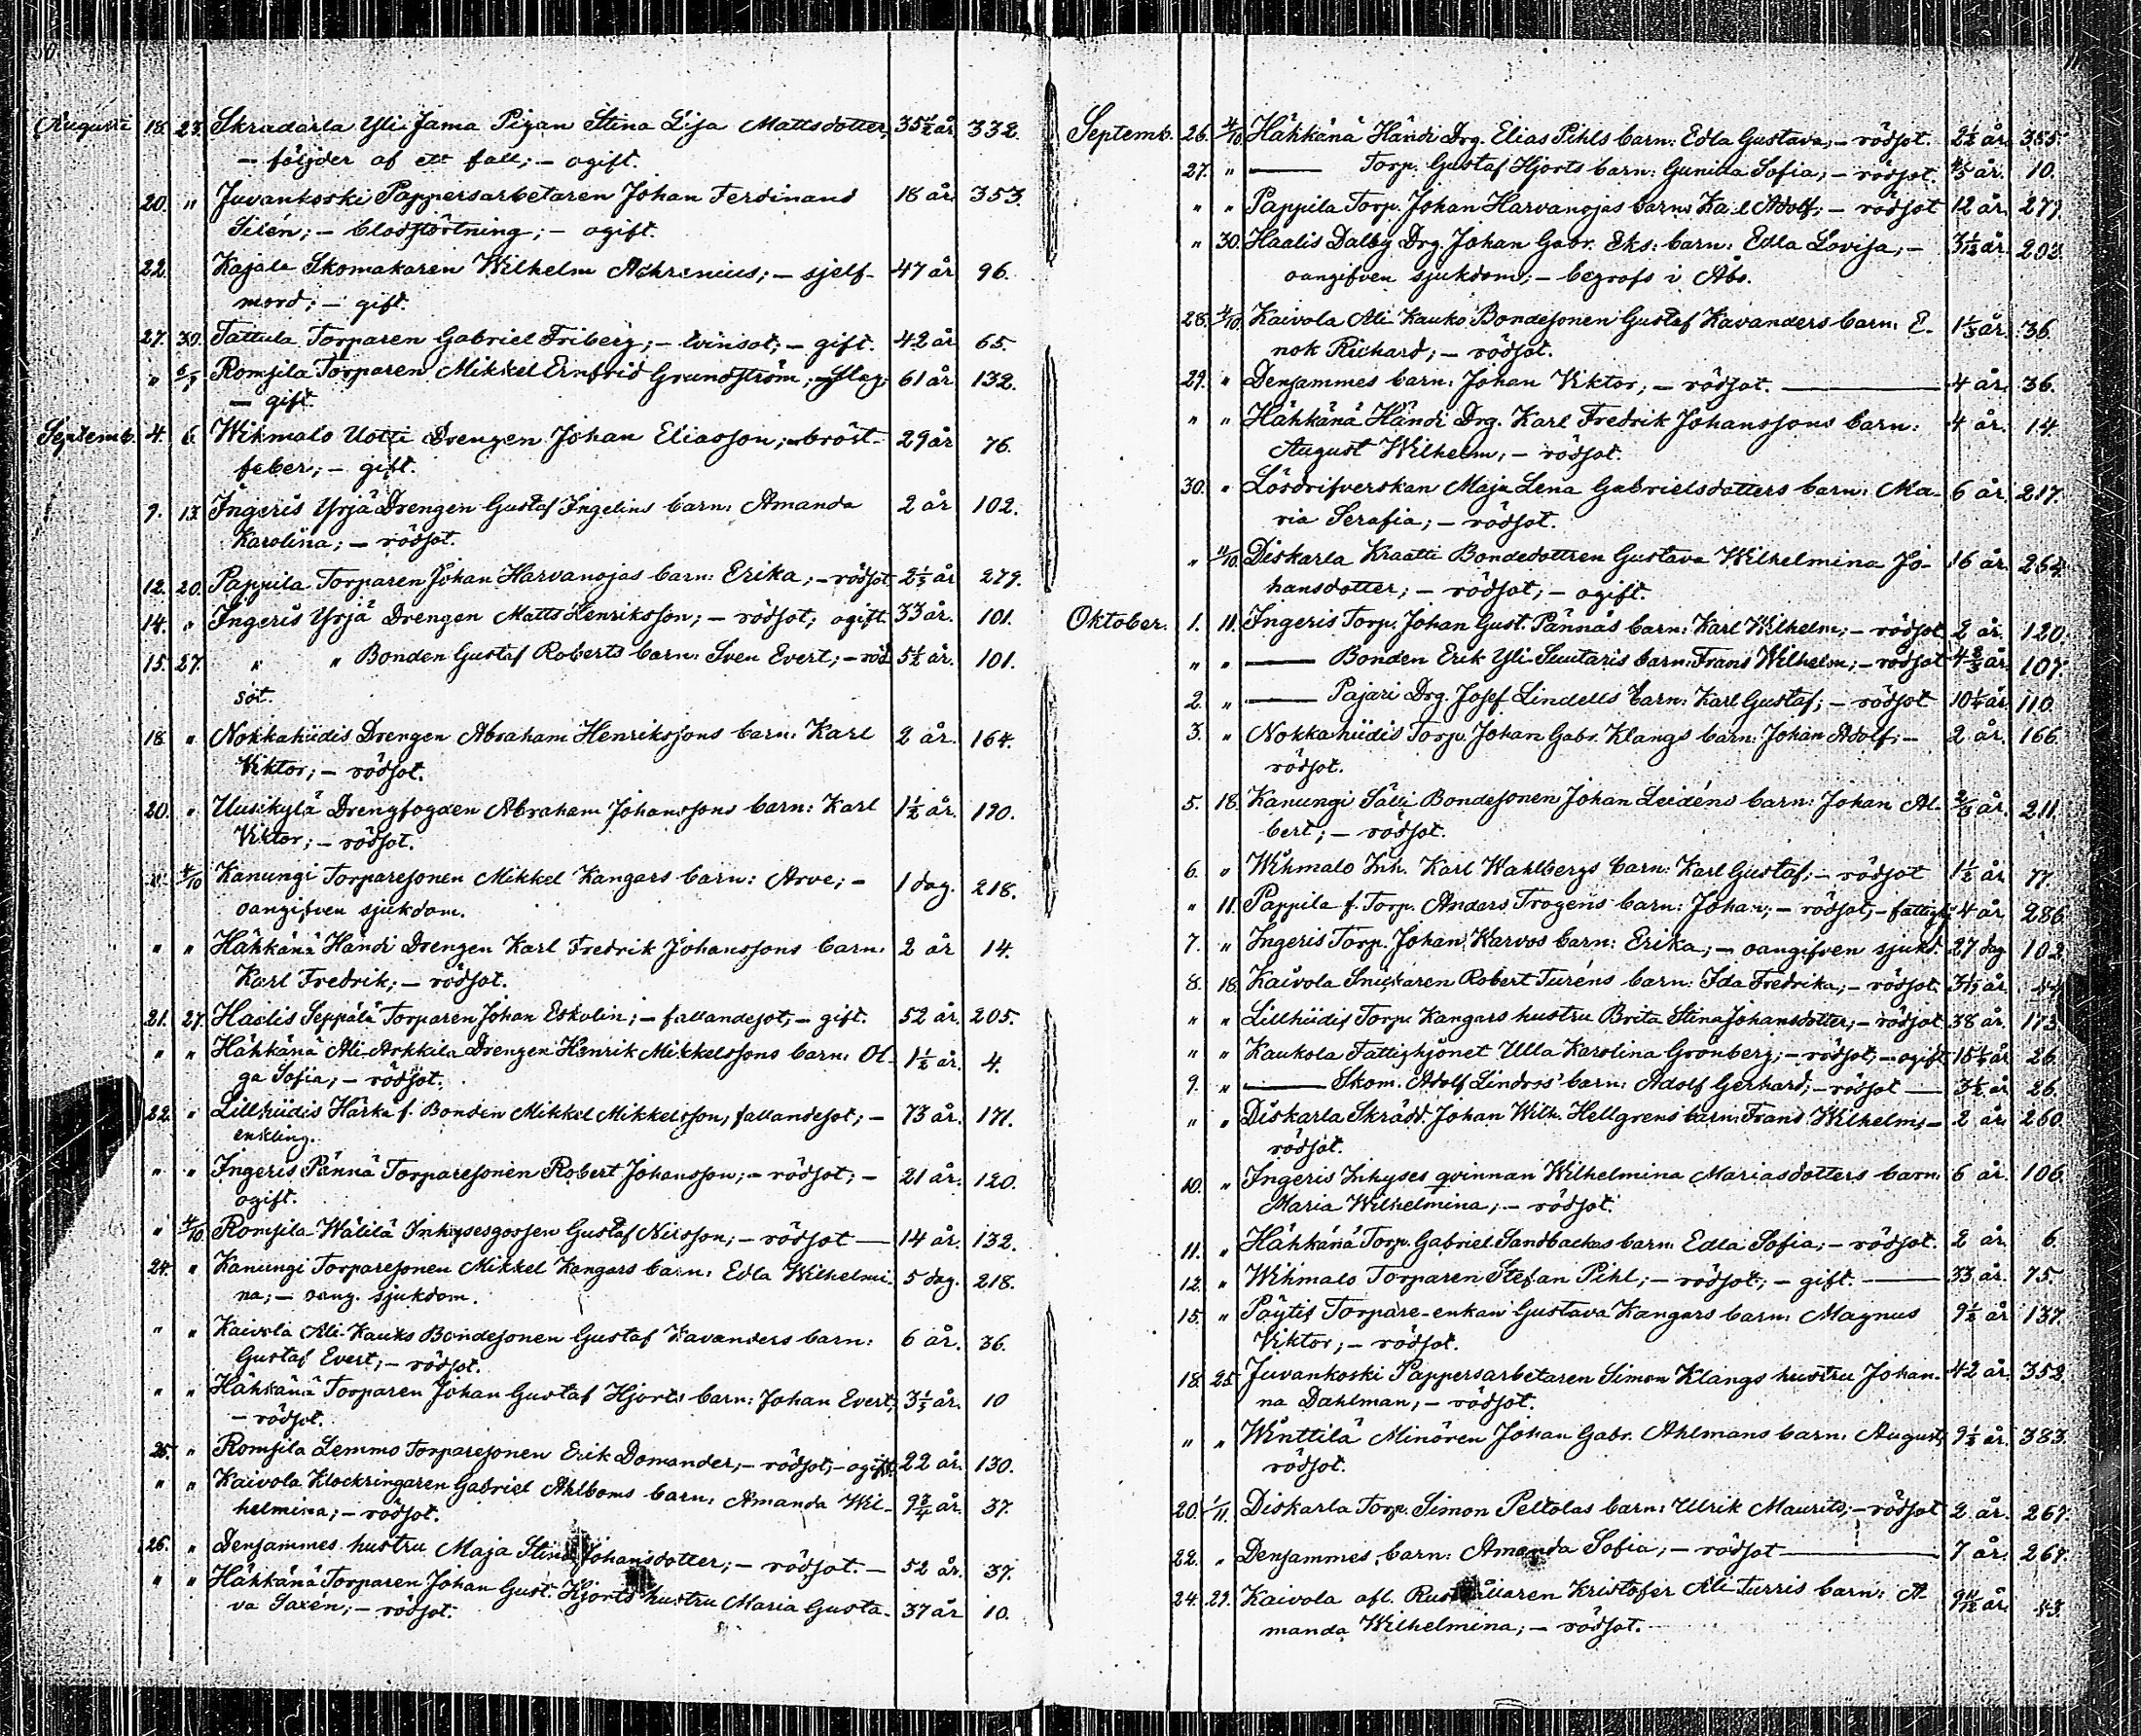 Augusti 18. 23. Skradarla Yli-Jama Pigan Stina Lisa Mattsdotter, 35½ år 332.
— följder af ett fall; — ogift.
20. " Juvankoski Pappersarbetaren Johan Ferdinand 18 år 353.
Silén; — blodstörtning; — ogift.
22. Kajala Skomakaren Wilhelm Achrenius; — sjelf- 47 år 96.
mord; — gift.
27. 30. Tattula Torparen Gabriel Friberg; — tvinsot; — gift. 42 år 65.
" 6/9 Romsila Torparen Mikkel Ernfrid Grundström; — slag; 61 år 132.
— gift.
Septemb. 4. 6. Wihmalo Uotti Drengen Johan Eliasson; — bröst- 29 år 76.
feber; — gift.
9. 13. Ingeris Yrjä Drengen Gustaf Ingelins barn: Amanda 2 år 102.
Karolina; — rödsot.
12. 20. Pappila Torparen Johan Harvanojas barn: Erika; — rödsot 2⅓ år 279.
14. " Ingeris Yrjä Drengen Matts Henriksson; — rödsot; ogift. 33 år. 101.
15. 27. " " Bonden Gustaf Roberts barn: Sven Evert; — röd 5½ år. 101.
sot.
18. " Nokkahiidis Drengen Abraham Henrikssons barn: Karl 2 år. 164.
Viktor; — rödsot.
20. " Uusikylä Drengfogden Abraham Johanssons barn: Karl 1½ år. 190.
Viktor; — rödsot.
" 4/10 Kanungi Torparesonen Mikkel Kangars barn: Arve; — 1 dag. 218.
oangifven sjukdom.
" " Hähkänä Händi Drengen Karl Fredrik Johanssons barn: 2 år 14.
Karl Fredrik; — rödsot.
21. 27. Haalis Seppälä Torparen Johan Eskolin; — fallandesot; — gift. 52 år. 205.
" " Hähkänä Ali-Arkkila Drengen Henrik Mikkelssons barn: Ol- 1½ år. 4.
ga Sofia; — rödsot.
22. " Lillhiidis Härkä f. Bonden Mikkel Mikkelsson, fallandesot; — 73 år. 171.
enkling.
" " Ingeris Pännä Torparesonen Robert Johansson; — rödsot; — 21 år. 120.
ogift.
" 4/10 Romsila Wälilä Inhysesgossen Gustaf Nilsson; — rödsot — 14 år. 132.
24. " Kanungi Torparesonen Mikkel Kangars barn: Edla Wilhelmi- 5 dag. 218.
na; — oang. sjukdom.
" " Kaivola Ali-Kauko Bondesonen Gustaf Kavanders barn: 6 år. 36.
Gustaf Evert; — rödsot.
" " Hähkänä Torparen Johan Gustaf Hjorts barn: Johan Evert; 3⅓ år. 10
— rödsot.
25. " Romsila Lemmo Torparesonen Erik Domander; — rödsot; — ogift. 22 år. 130.
" " Kaivola Klockringaren Gabriel Ahlboms barn: Amanda Wil- 9¾ år. 37.
helmina; — rödsot.
26. " Densammes hustru Maja Stina Johansdotter; — rödsot. — 52 år. 37.
" " Hähkänä Torparen Johan Gust. Hjorts hustru Maria Gusta- 37 år 10.
va Saxen; — rödsot.
Septemb. 26. 4/10 Hähkänä Händi Drg. Elias Pihls barn: Edla Gustava; — rödsot. 2½ år. 355.
27. " — Torp. Gustaf Hjorts barn: Gunilla Sofia; — rödsot. 4/5 år. 10.
" " Pappila Torp. Johan Harvanojas barn: Karl Adolf; — rödsot 12 år. 279.
" 30. Haalis Dalby Drg. Johan Gabr. Eks: barn: Edla Lovisa; — 3 1/12 år. 203.
oangifven sjukdom; — begrofs i Åbo.
28. 4/10 Kaivola Ali Kauko Bondesonen Gustaf Kavanders barn: E- 1⅓ år. 36.
nok Richard; — rödsot.
29. " Densammes barn: Johan Viktor; — rödsot. — 4 år. 36.
" " Hähkänä Händi Drg. Karl Fredrik Johanssons barn: 4 år. 14.
August Wilhelm; — rödsot.
30. " Lösdrifverskan Maja Lena Gabrielsdotters barn: Ma- 6 år. 217.
ria Serafia; — rödsot.
" 11/10 Diskarla Kraatti Bondedottren Gustava Wilhelmina Jo- 16 år. 264.
hansdotter; — rödsot; — ogift.
Oktober. 1. 11. Ingeris Torp. Johan Gust. Pännäs barn: Karl Wilhelm; — rödsot 2 år. 120.
" " — Bonden Erik Yli-Suutaris barn: Frans Wilhelm; — rödsot 4⅔ år. 107.
2. " — Pajari Drg. Josef Lindells barn: Karl Gustaf; — rödsot 10¼ år. 110.
3. " Nokkahiidis Torp. Johan Gabr. Klangs barn: Johan Adolf; — 2 år. 166.
rödsot.
5. 18. Kanungi Sälli Bondesonen Johan Leidéns barn: Johan Al- år. 211.
bert; — rödsot.
6. " Wihmalo Inh. Karl Wahlbergs barn: Karl Gustaf; — rödsot 1½ år. 77.
" 11. Pappila f. Torp. Anders Trogens barn: Johan; — rödsot; — fattighj. 4 år 286.
7. " Ingeris Torp. Johan Warvos barn: Erika; — oangifven sjukd. 27 dag 102.
8. 18. Kaivola Snickaren Robert Turéns barn: Ida Fredrika; — rödsot. år. 44.
" " Lillhiidis Torp. Kangars hustru Brita Stina Johansdotter; — rödsot 38 år. 173.
" " Kaukola Fattighjonet Ulla Karolina Grönberg; — rödsot; — ogift 15¼ år 26.
9. " — Skom. Adolf Lindros' barn: Adolf Gerhard; — rödsot — 3½ år 26.
" " Diskarla Skrädd. Johan Wilh. Hellgrens barn: Frans Wilhelm; — 2 år. 260.
rödsot.
10. " Ingeris Inhyses qvinnan Wilhelmina Mariasdotters barn: 6 år. 106.
Maria Wilhelmina; — rödsot.
11. " Hähkänä Torp. Gabriel Sandbackas barn: Edla Sofia; — rödsot. 2 år 6.
12. " Wihmalo Torparen Stefan Pihl; — rödsot; — gift. — 33 år. 75.
15. " Pöytis Torpare-enkan Gustava Kangars barn: Magnus 9½ år 137.
Viktor; — rödsot.
18. 25. Juvankoski Pappersarbetaren Simon Klangs hustru Johan- 42 år. 352.
na Dahlman; — rödsot.
" " Winttilä Minören Johan Gabr. Ahlmans barn: August; 9⅓ år. 383.
rödsot.
20. 1/11. Diskarla Torp. Simon Peltolas barn: Ulrik Maurits; — rödsot 2 år. 267.
22. " Densammes barn: Amanda Sofia; — rödsot — 7 år. 267.
24. 29. Kaivola afl. Rusthållaren Kristofer Ali-Turris barn: A- 9 11/12 år. 43.
manda Wilhelmina; — rödsot.